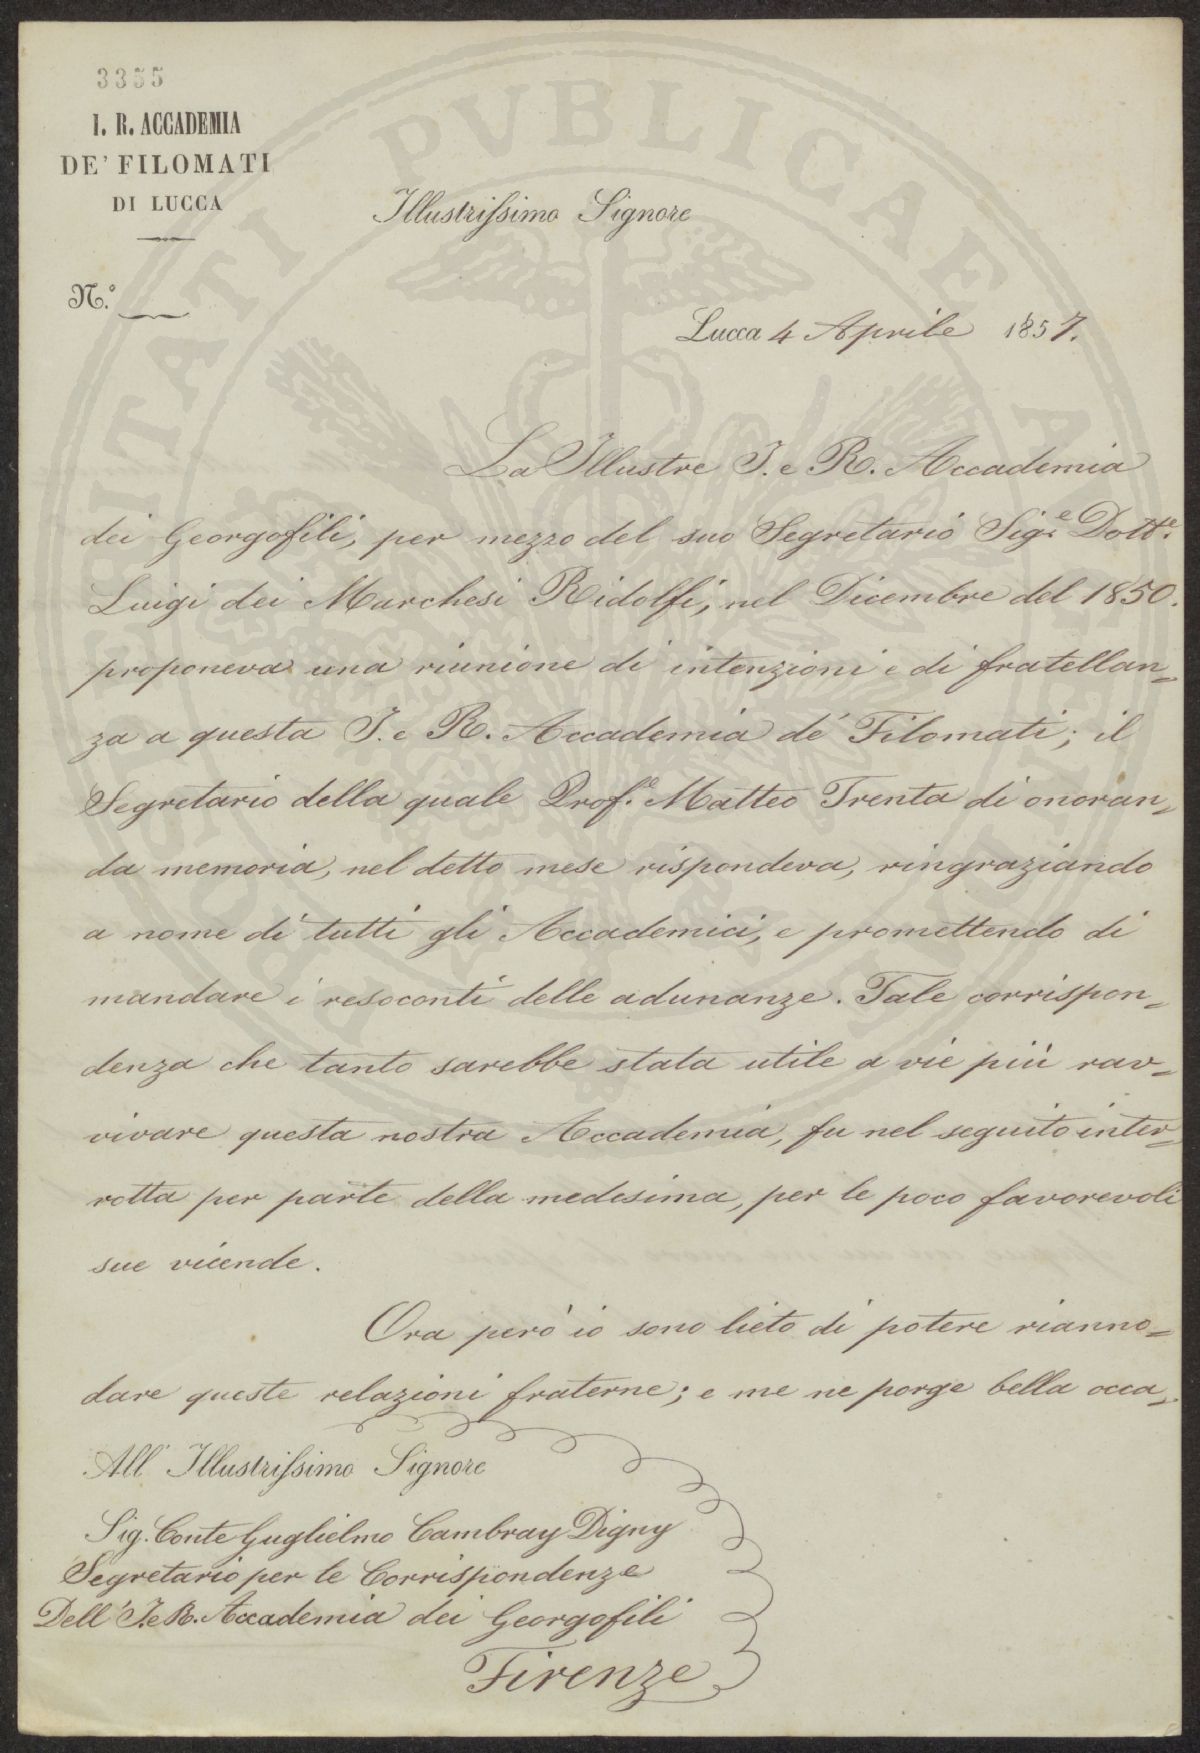 3355
I. R. ACCADEMIA
DE' FILOMATI
DI LUCCA
N.º
Illustrissimo Signore
Lucca 4 Aprile 1857.
La Illustre I. e R. Accademia
dei Georgofili, per mezzo del suo Segretario Sig.e Dott.e
Luigi dei Marchesi Ridolfi, nel Dicembre del 1850.
proponeva una riunione di intenzioni e di fratellan=
za a questa I. e R. Accademia de' Filomati; il
Segretario della quale Prof.e Matteo Trenta di onoran=
da memoria, nel detto mese rispondeva, ringraziando
a nome di tutti gli Accademici, e promettendo di
mandare i resoconti delle adunanze. Tale corrispon=
denza che tanto sarebbe stata utile a vie più rav=
vivare questa nostra Accademia, fu nel seguito inter=
rotta per parte della medesima, per le poco favorevoli
sue vicende.
Ora però io sono lieto di potere rianno=
dare queste relazioni fraterne; e me ne porge bella occa=
All' Illustrissimo Signore
Sig. Conte Guglielmo Cambray Digny
Segretario per le Corrispondenze
Dell' I. e R. Accademia dei Georgofili
Firenze
PROSPERITATI PVBLICAE AVGENDAE